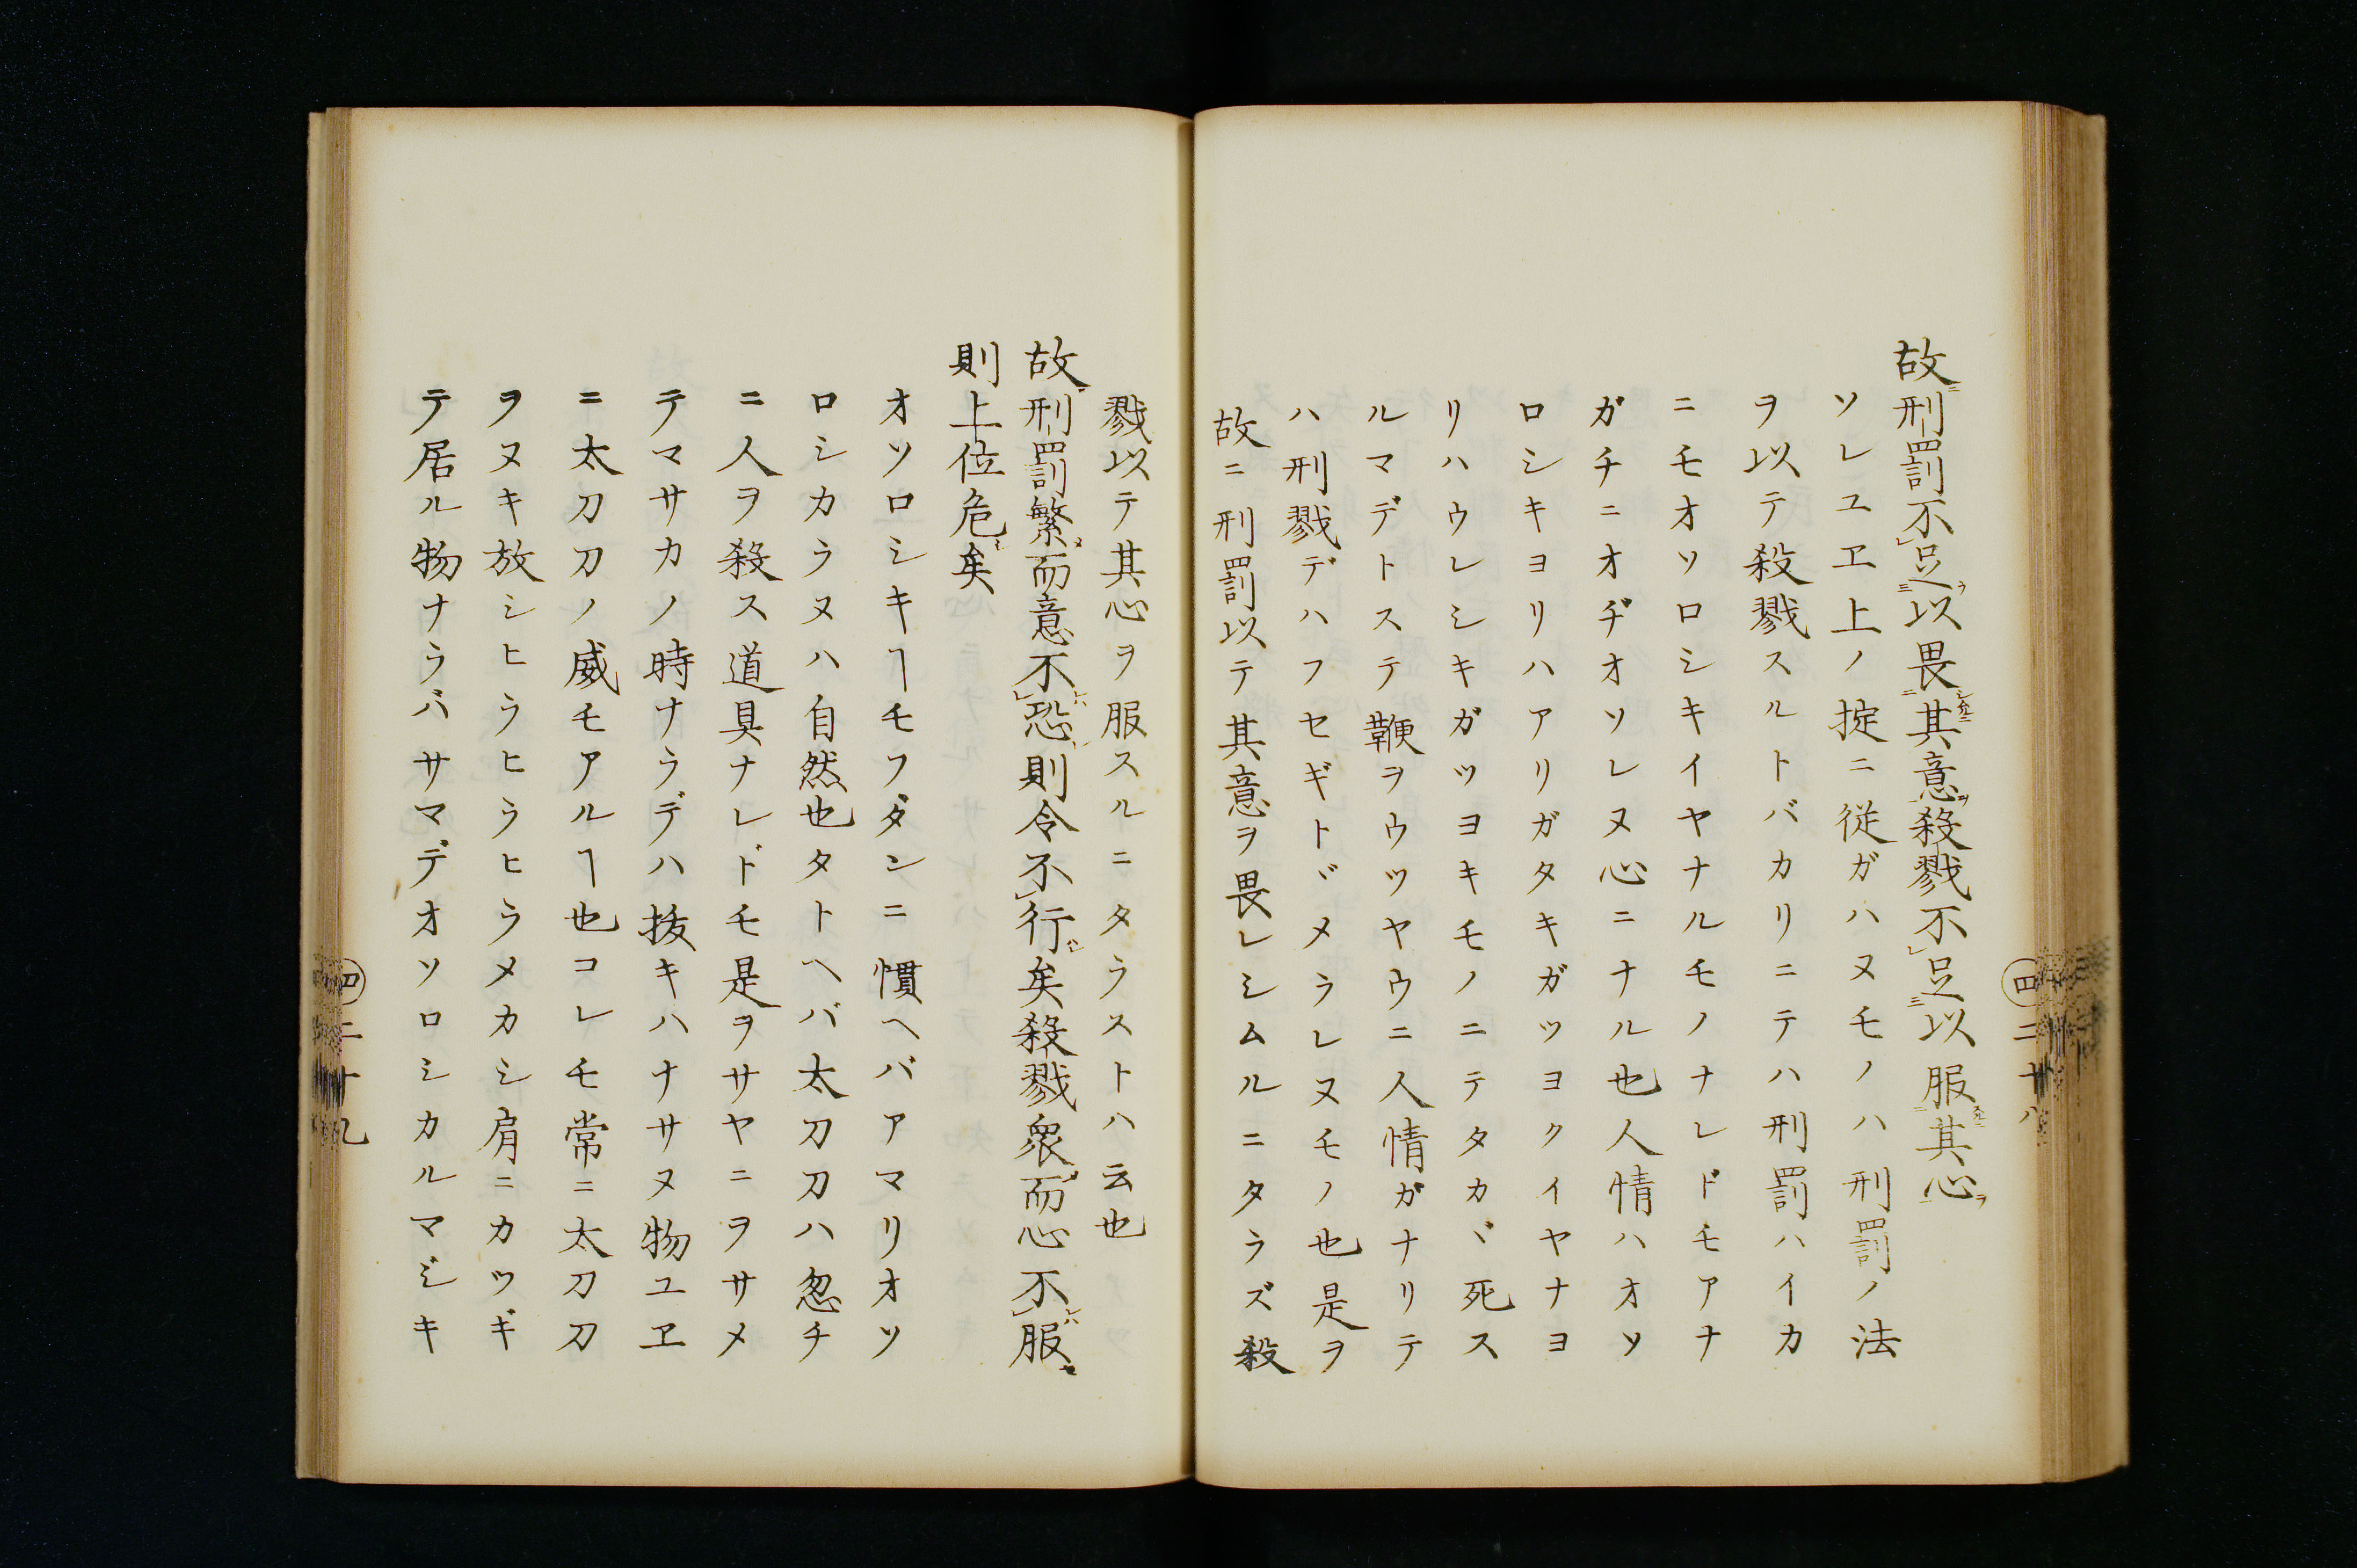 故刑罰不足以畏其意殺戮不足以服其心
ソレユヱ上ノ掟ニ従ガハヌモノハ刑罰ノ法
ヲ以テ殺戮スルトバカリニテハ刑罰ハイカ
ニモオソロシキイヤナルモノナレドモアナ
ガチニオヂオソレヌ心ニナル也人情ハオソ
ロシキヨリハアリガタキガツヨクイヤナヨ
リハウレシキガツヨキモノニテタカヾ死ス
ルマデトステ鞭ヲウツヤウニ人情ガナリテ
ハ刑戮デハフセギトヾメラレヌモノ也是ヲ
故ニ刑罰以テ其意ヲ畏レシムルニタラズ殺
四二十八
戮以テ其心ヲ服スルニタラストハ云也
故刑罰繁而意不恐則令不行矣殺戮衆而心不服
則上位危矣
オソロシキヿモフダンニ慣ヘバアマリオソ
ロシカラヌハ自然也タトヘバ太刀刀ハ忽チ
ニ人ヲ殺ス道具ナレドモ是ヲサヤニヲサメ
テマサカノ時ナラデハ抜キハナサヌ物ユヱ
ニ太刀刀ノ威モアルヿ也コレモ常ニ太刀刀
ヲヌキ放シヒラヒラヒラメカシ肩ニカツギ
テ居ル物ナラバサマデオソロシカルマジキ
四二十九